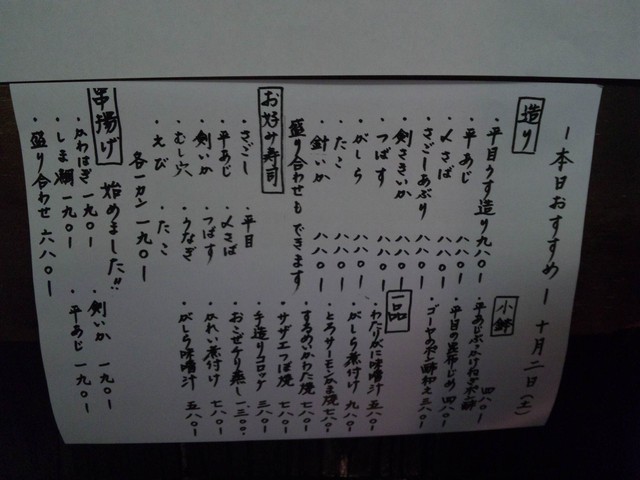 ー本日おすすめー 十月二日(土)
造り
・平目うす造り 九八〇ー
・平あじ 八八〇ー
・〆さば 八八〇ー
・さごしあぶり 八八〇ー
・剣さきいか 八八〇ー
・つばす 八八〇ー
・がしら 八八〇ー
・たこ 八八〇ー
・針いか 八八〇ー
盛り合わせもできます
小鉢
・平あじぶっかけねぎポン酢 四八〇ー
・平目の昆布じめ 四八〇ー
・ゴーヤのポン酢和え 三八〇ー
一品
・わたりがに味噌汁 五八〇ー
・がしら煮付け 九八〇ー
・とろサーモンかま焼 七八〇ー
・するめいかわた焼 七八〇ー
・サザエつぼ焼 七八〇ー
・手造りコロッケ 三八〇ー
・おこぜチリ蒸し 一三〇〇ー
・かれい煮付け 七八〇ー
・がしら味噌汁 五八〇ー
お好み寿司
・さごし ・平目
・平あじ ・〆さば
・剣いか ・つばす
・むし穴 ・うなぎ
・えび ・たこ
各一カン 一九〇ー
串揚げ 始めました!!
・かわはぎ 一九〇ー ・剣いか 一九〇ー
・しま鯛 一九〇ー ・平あじ 一九〇ー
・盛り合わせ 六八〇ー